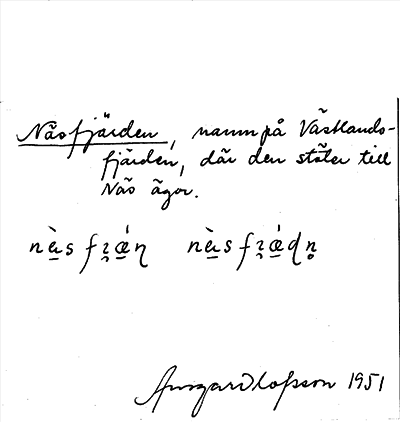 Näsfjärden, namn på Västlands-
fjärden, där den stöter till
Näs ägor.
nè̠s fʒǽ̠η nè̠s fʒǽ̠dn̥
Ansgar Olofsson 1951